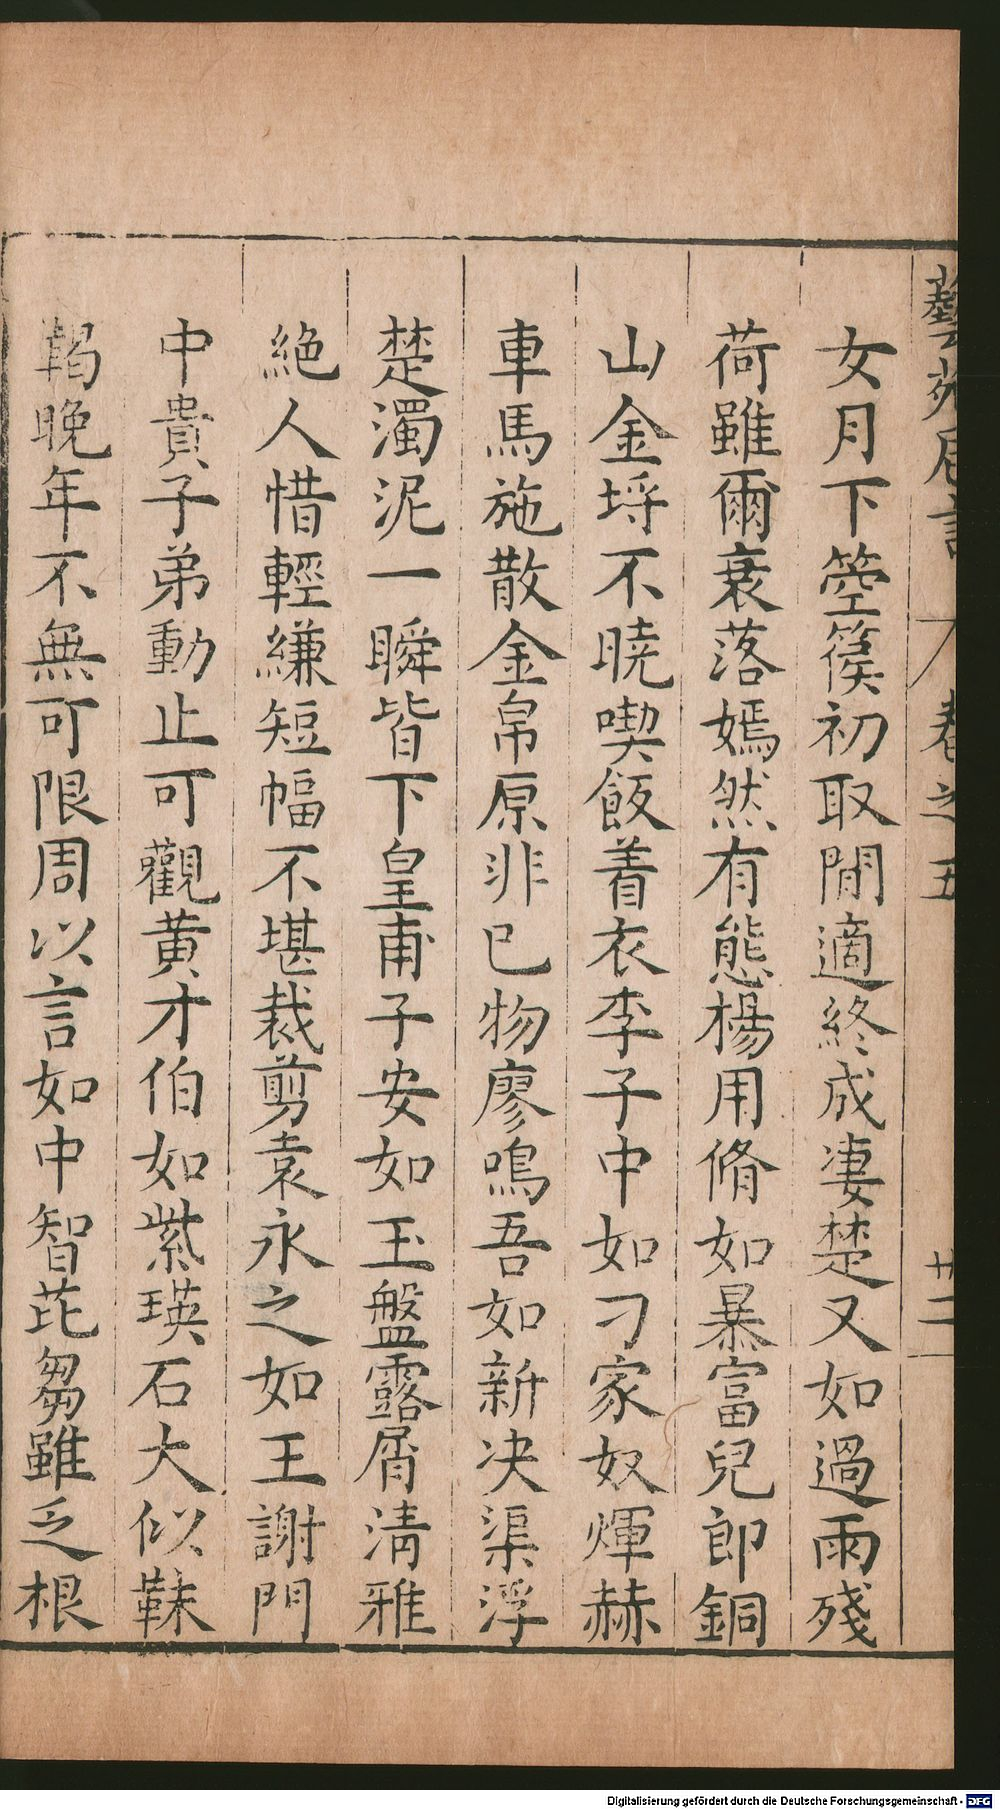 藝苑卮言 卷之五 廿二
女月下箜篌初取閒適終成凄楚又如過雨殘
荷雖爾衰落嫣然有態楊用脩如暴富兒郎銅
山金埒不曉喫飯着衣李子中如刁家奴煇赫
車馬施散金帛原非已物廖鳴吾如新决渠浮
楚濁泥一瞬皆下皇甫子安如玉盤露屑清雅
絶人惜輕縑短幅不堪裁剪袁永之如王謝門
中貴子弟動止可觀黄才伯如紫瑛石大似靺
鞨晚年不無可限周以言如中智芘芻雖乏根
Digitalisierung gefördert durch die Deutsche Forschungsgemeinschaft - DFG